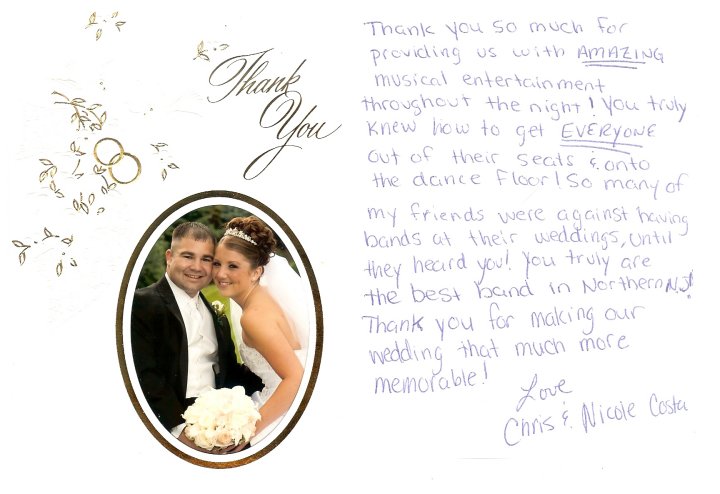 Thank
You
Thank you so much for
providing us with AMAZING
musical entertainment
throughout the night! You truly
knew how to get EVERYONE
out of their seats & onto
the dance floor! So many of
my friends were against having
bands at their weddings, until
they heard you! You truly are
the best band in Northern N.J!
Thank you for making our
wedding that much more
memorable!
Love
Chris & Nicole Costa